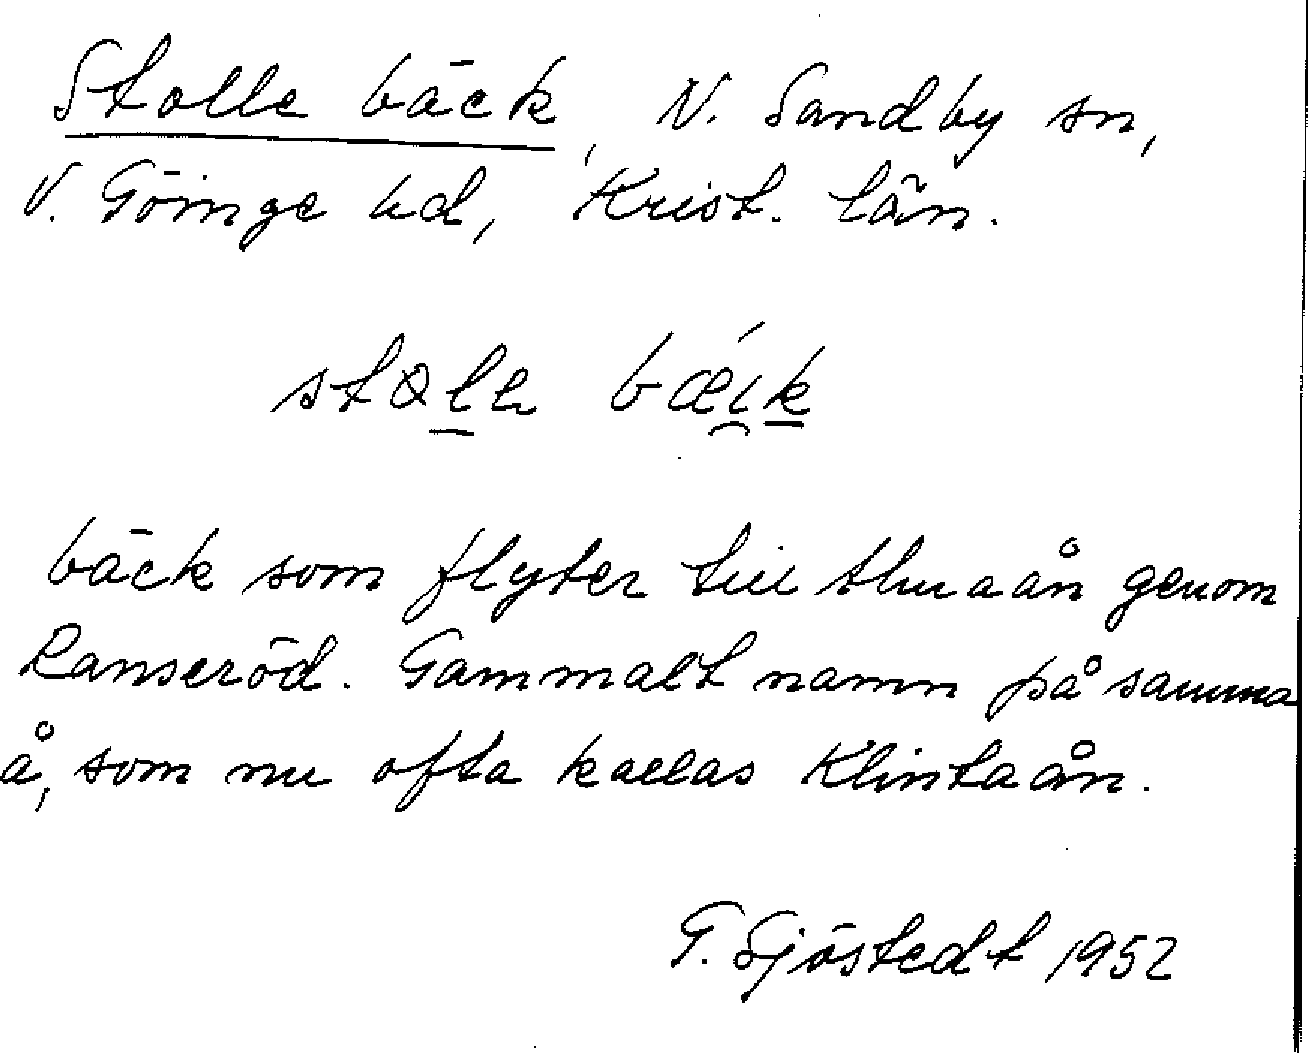 Stolle bäck, N. Sandby sn,
V. Göinge hd, Krist. län.
bäck som flyter till Almaån genom
Ranseröd. Gammalt namn på samma
å, som nu ofta kallas Klintaån.
G. Sjöstedt 1952